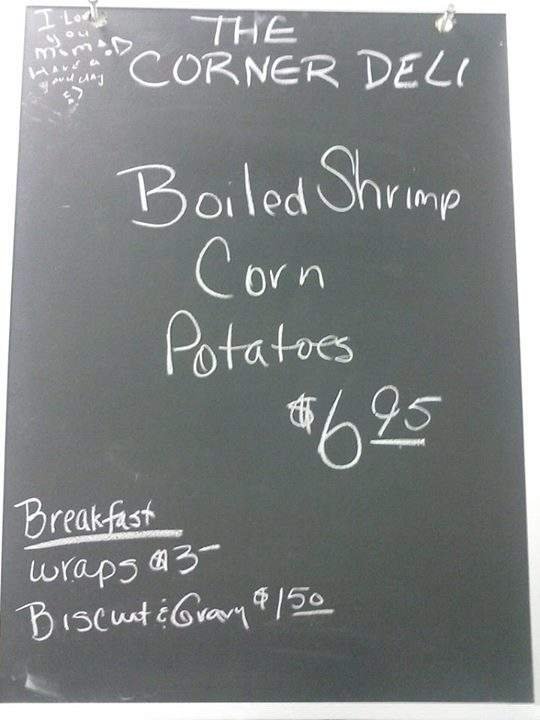 I Love
you
mom
Have a
good day
THE
CORNER DELI
Boiled Shrimp
Corn
Potatoes
$6 95
Breakfast
wraps $3-
Biscuit & Gravy $1 50